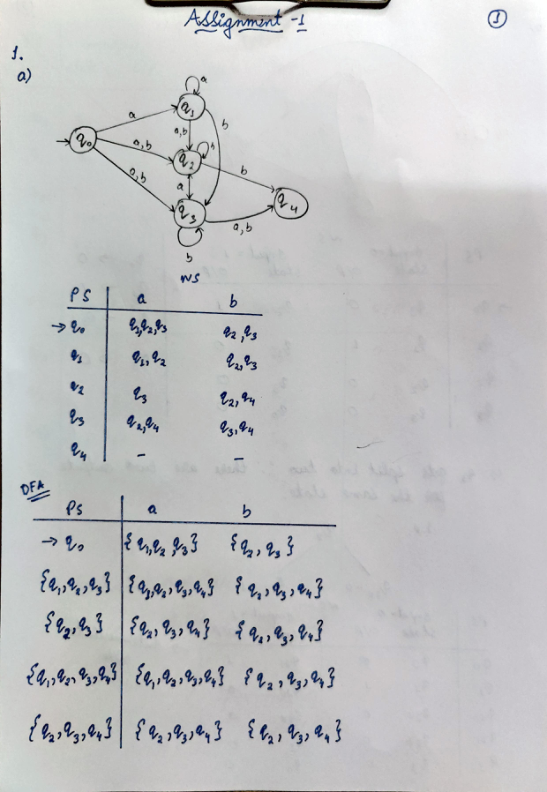 Assignment-1
1
1.
a)
a
q1
a
b
a,b
q0
a,b
q2
b
b
a,b
a
q4
q3
a,b
b
NS
PS a b
→ q0 q1,q2,q3 q2,q3
q1 q1,q2 q2,q3
q2 q3 q2,q4
q3 q2,q4 q3,q4
q4 - -
DFA
PS a b
→ q0 {q1,q2,q3} {q2,q3}
{q1,q2,q3} {q1,q2,q3,q4} {q2,q3,q4}
{q2,q3} {q2,q3,q4} {q2,q3,q4}
{q1,q2,q3,q4} {q1,q2,q3,q4} {q2,q3,q4}
{q2,q3,q4} {q2,q3,q4} {q2,q3,q4}